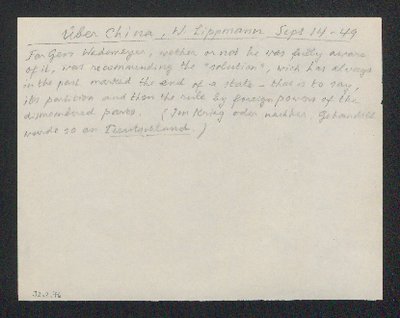 Über China, W. Lippmann Sept 14-49
For Gen. Wedemeyer, wether or not he was fully aware
of it, was recommending the "solution", wich has always
in the past marked the end of a state – that is to say,
its partition and then the rule by foreign powers of the
dismembered parts. (Im Krieg oder nachher. Gehandelt
wurde so an Deutschland.)